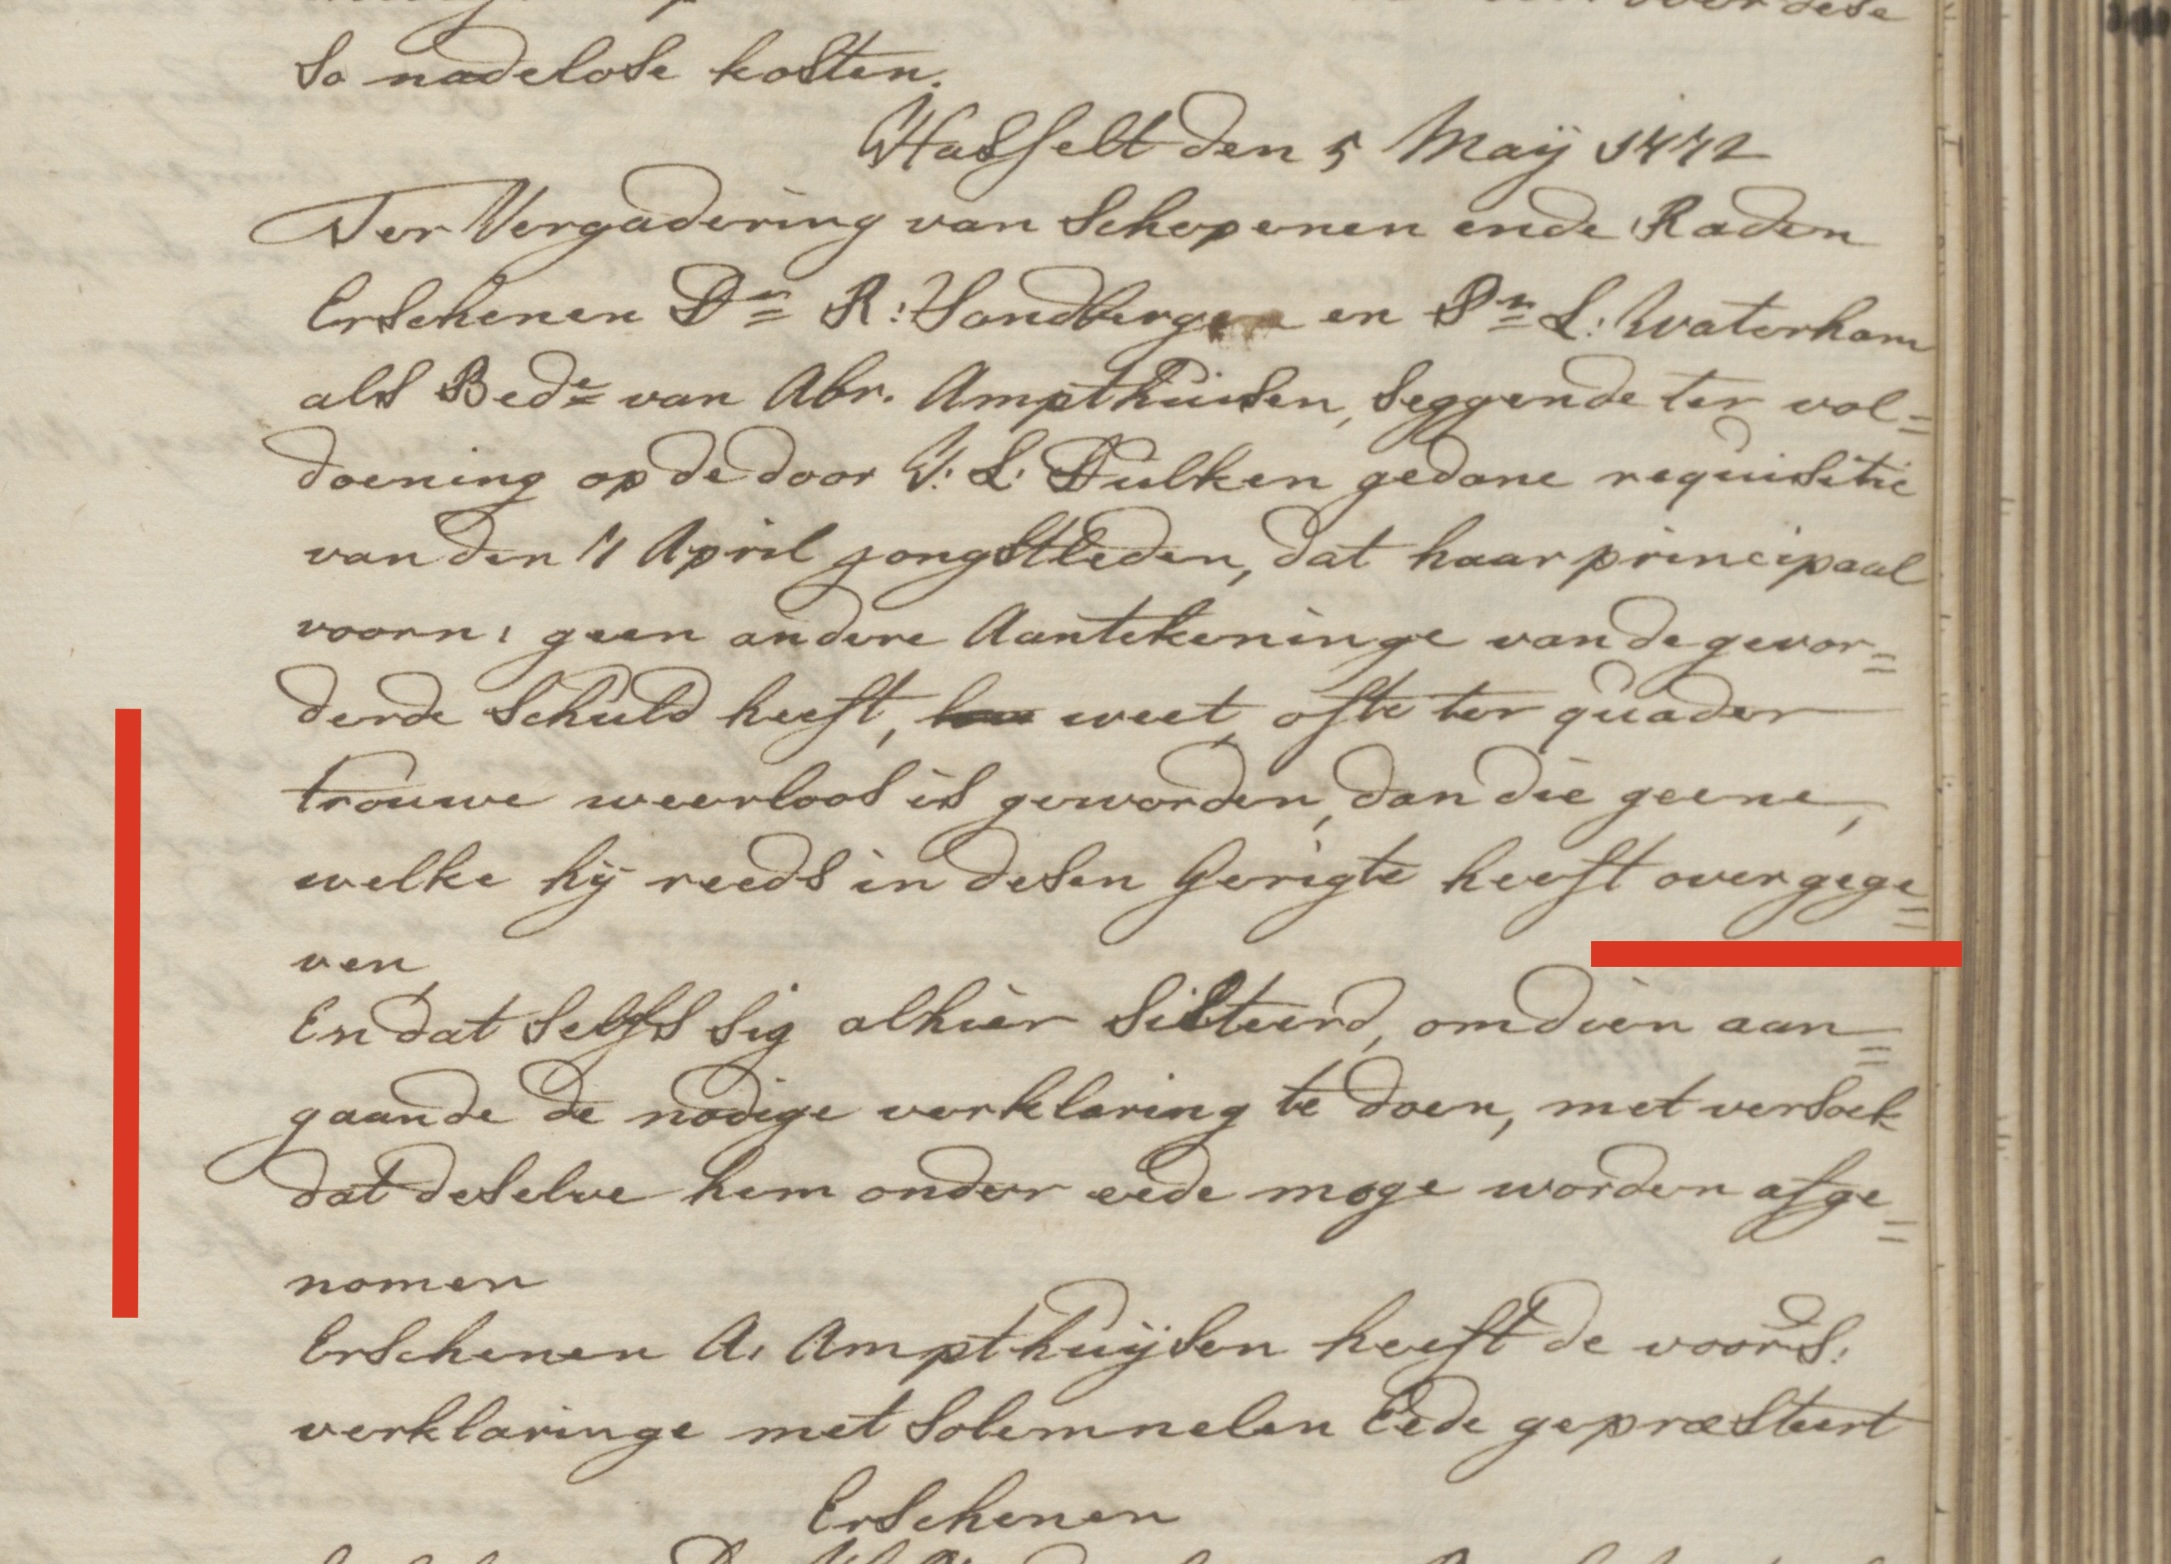 so nadelose kosten.
Hasselt den 5 Maÿ 1772
Ter Vergadering van Schepenen ende Raden
Erschenen Dr. R: Sandberg en Pr. L: Waterham
als Bede. van Abr. Ampthuisen, seggende ter vol=
doening op de door V: L: Dulken gedane requisitie
van den 7 April jongstleden, dat haar principaal
voorn: geen andere Aantekeninge van de gevor=
derde schuld heeft, weet ofte ter quader
trouwe weerloos is geworden, dan die geene,
welke hij reeds in desen Gerigte heeft overgege=
ven
En dat selfs sig alhier sisteerd, om dien aan=
gaande de nodige verklaring te doen, met versoek
dat deselve hem onder eede moge worden afge=
nomen
Erschenen A: Ampthuÿsen heeft de voors:
verklaringe met solemnelen Eede gepræsteert
Erschenen